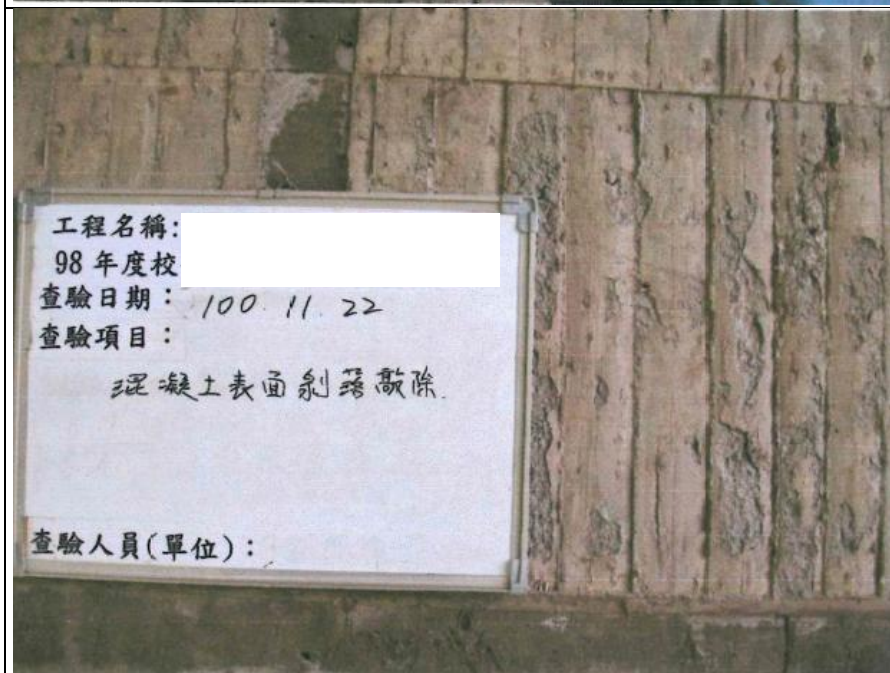 工程名稱:
98 年度校
查驗日期: 100. 11. 22
查驗項目:
混凝土表面剝落敲除.
查驗人員(單位):